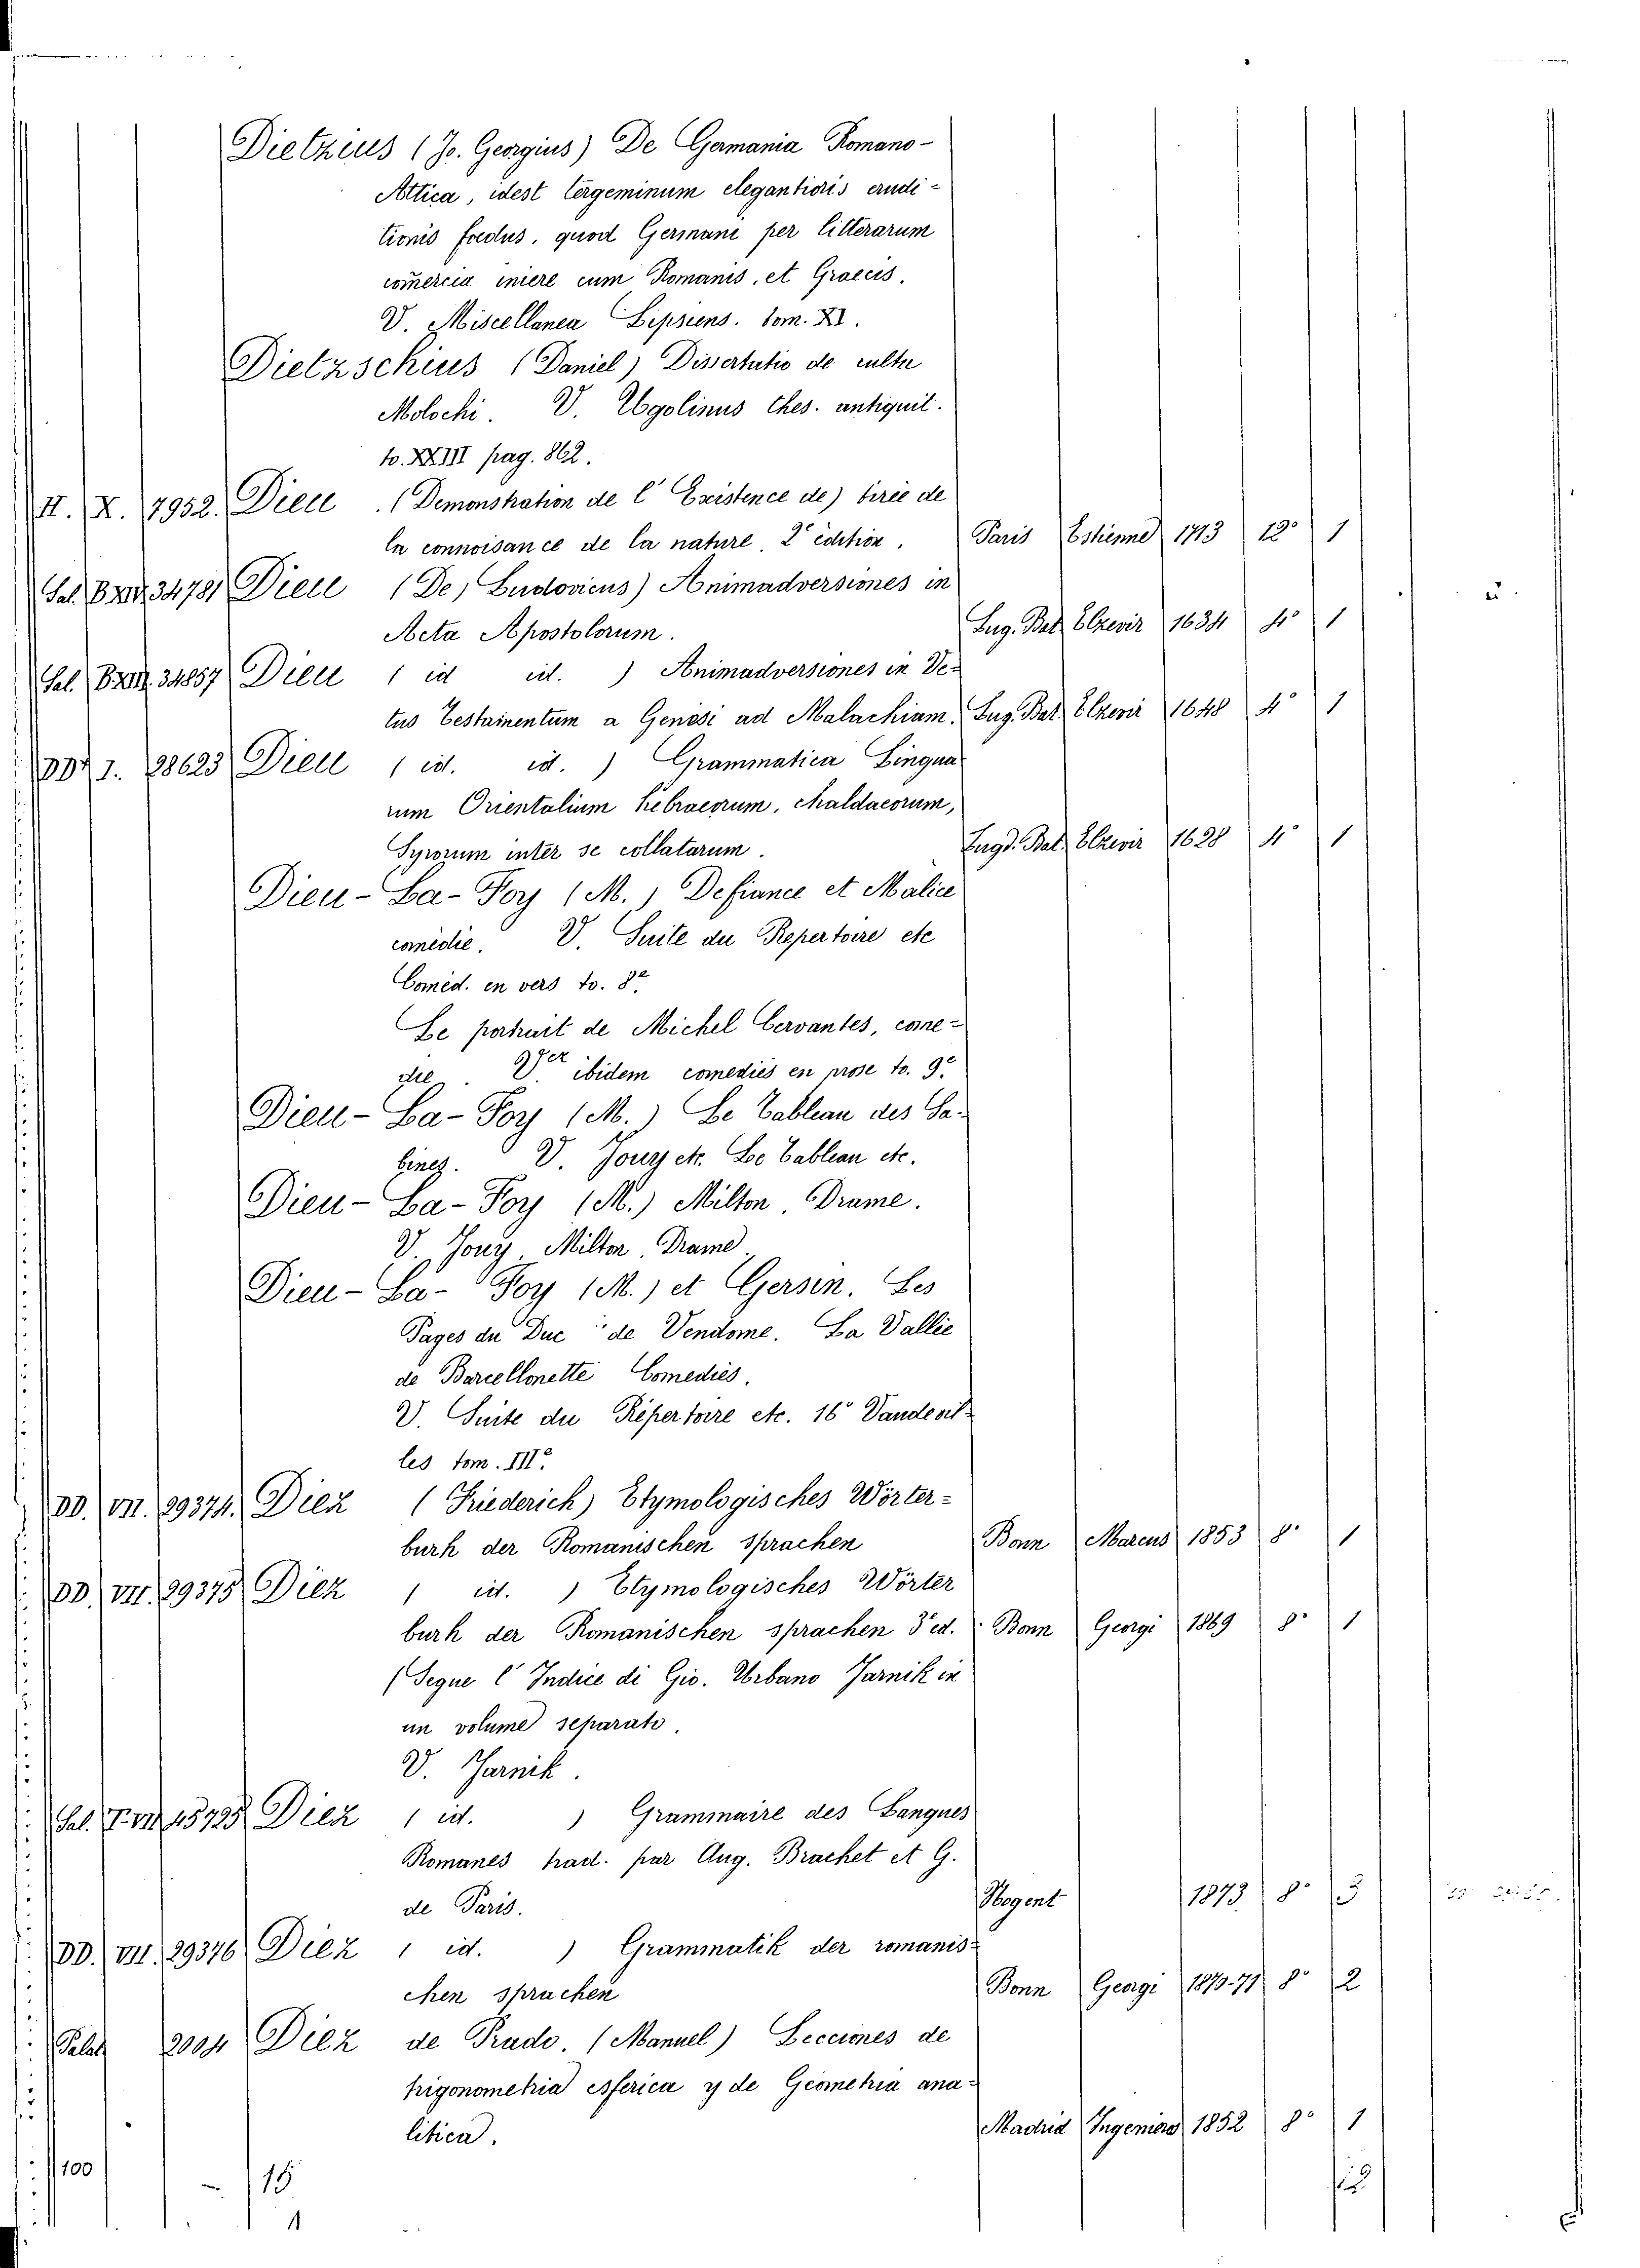 Dietzius (Jo. Georgius) De Germania Romano-
Attica, idest tergeminum elegantioris erudi-
tionis foedus, quod Germani per litterarum
comercia iniere cum Romanis, et Graecis.
V. Miscellanea Lipsiens. tom. XI.
Dietzschius (Daniel) Dissertatio de cultu
Molochi. V. Ugolinus thes. antiquit.
to. XXIII pag. 862.
II. X. 7952. Dieu (Demonstration de l'Existence de) tirée de
la connoisance de la nature. 2e edition. Paris Estienne 1713 12° 1
Sal. 34781 Dieu (De, Ludovicus) Animadversiones in
Acta Apostolorum. Lug. Bat. Elzevir 1634 4° 1
Sal. 34857 Dieu (id id.) Animadversiones in Ve-
tus Testamentum a Genesi ad Malachiam. Lug. Bat. Elzevir 1648 4° 1
I. 28623 Dieu (id. id.) Grammatica Lingua
rum Orientalium Hebraeorum, Chaldaeorum,
Syrorum inter se collatarum. Lugd. Bat. Elzevir 1628 4° 1
Dieu-La-Foy (M.) Defiance et Malice
comédie. V. Suite du Repertoire etc
Comed. en vers to. 8e
Le portrait de Michel Cervantes, come-
die. Ver ibidem comediés en prose to. 9e
Dieu-La-Foy (M.) Le Tableau des Sa-
bines. V. Jouy etc. Le Tableau etc.
Dieu-La-Foy (M.) Milton, Drame.
V. Jouy, Milton, Drame.
Dieu-La-Foy (M.) et Gersin. Les
Pages du Duc de Vendome. La Vallie
de Barcellonette Comediés.
V. Suite du Répertoire etc. 16° Vandevil-
les tom. III°.
DD. VII. 29374. Diez (Friederich) Etymologisches Wörter-
burh der Romanischen Sprachen Bonn Marcus 1853 8° 1
DD. VII. 29375 Diez (id.) Etymologisches Wörter
burh der Romanischen sprachen 3e ed. Bonn Georgi 1869 8° 1
(Segue l'Indice di Gio. Urbano Jarnik in
un volume separato.
V. Jarnik.
Sal. 45795 Diez (id.) Grammaire des Langues
Romanes trad. par Aug. Brachet et G.
de Paris. Nogent 1873 8° 3
DD. VII. 29376 Diez (id.) Grammatik der romanis-
chen sprachen Bonn Georgi 1870-71 8° 2
Palat 2004 Diez de Prado. (Manuel) Lecciones de
trigonometria esferica y de Geometria ana-
litica. Madrid Ingenieros 1852 8° 1
100 - 15
1